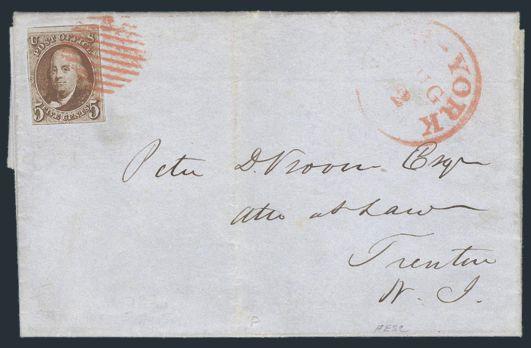 U S
POST OFFICE
5 5
FIVE CENTS
YORK
2
Peter D. Vroom Esqr
Atto at Law
Trenton
N. J.